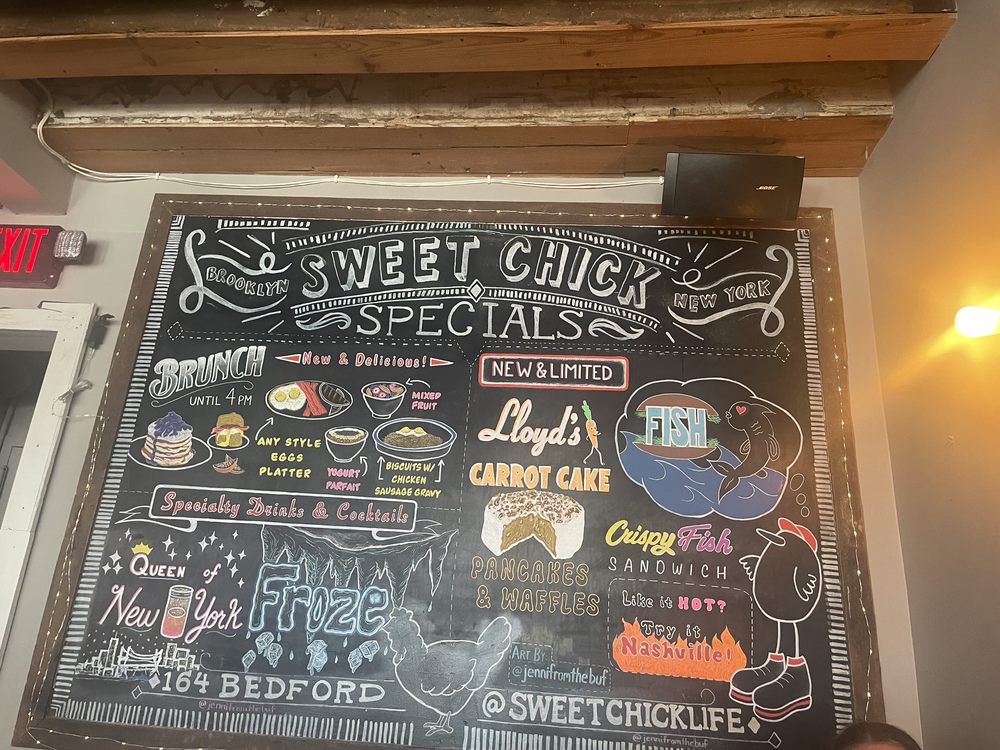 BOSE
EXIT
BROOKLYN
SWEET CHICK
NEW YORK
SPECIALS
BRUNCH
UNTIL 4PM
New & Delicious!
MIXED
FRUIT
ANY STYLE
EGGS
PLATTER
YOGURT
PARFAIT
BISCUITS W/
CHICKEN
SAUSAGE GRAVY
Specialty Drinks & Cocktails
QUEEN of
New York
Froze
164 BEDFORD
@jennifromthebuf
NEW & LIMITED
Lloyd's
CARROT CAKE
PANCAKES
& WAFFLES
FISH
Crispy Fish
SANDWICH
Like it HOT?
Try it
Nashville!
ART BY
@jennifromthebuf
@SWEETCHICKLIFE
@jennifromthebuf